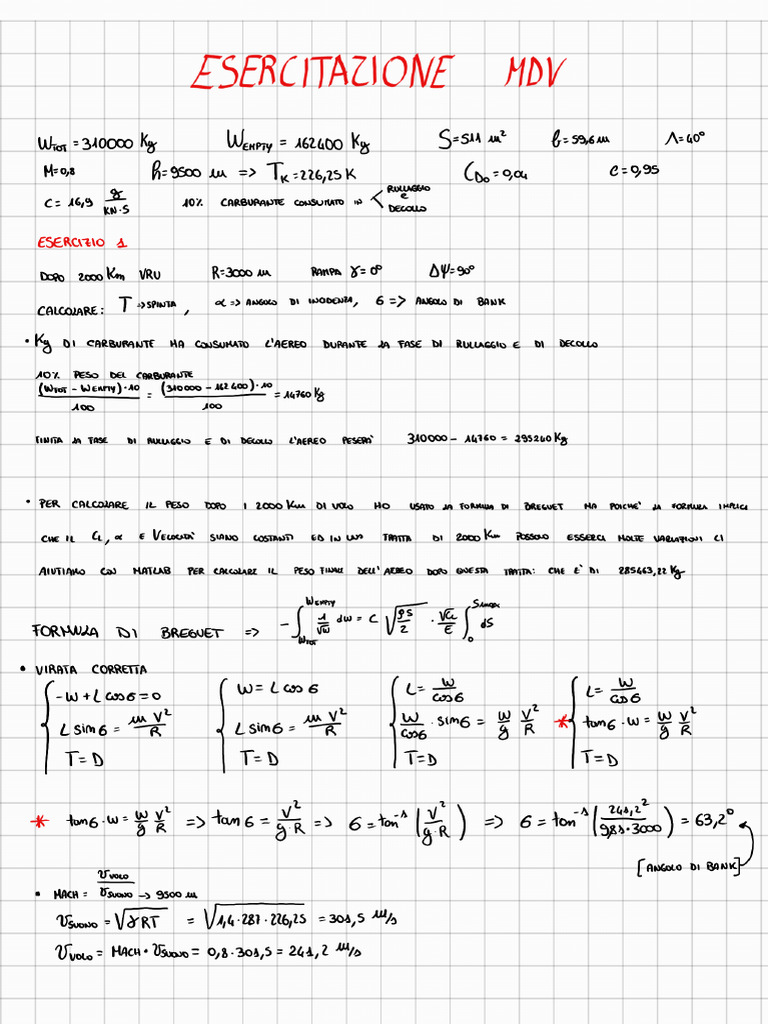 ESERCITAZIONE MDV
W_TOT = 310000 Kg W_EMPTY = 162400 Kg S = 511 m² b = 59,6 m Λ = 40°
M = 0,8 h = 9500 m => T_K = 226,25 K C_D0 = 0,04 e = 0,95
c = 16,9 g/(KN·S) 10% CARBURANTE CONSUMATO IN < RULLAGGIO E DECOLLO
ESERCIZIO 1
DOPO 2000 Km VRU R = 3000 m RAMPA γ = 0° ΔΨ = 90°
CALCOLARE: T => SPINTA, α => ANGOLO DI INCIDENZA, б => ANGOLO DI BANK
• Kg DI CARBURANTE HA CONSUMATO L'AEREO DURANTE LA FASE DI RULLAGGIO E DI DECOLLO
10% PESO DEL CARBURANTE
(W_TOT - W_EMPTY)·10/100 = (310000 - 162400)·10/100 = 14760 Kg
FINITA LA FASE DI RULLAGGIO E DI DECOLLO L'AEREO PESERA' 310000 - 14760 = 295240 Kg
• PER CALCOLARE IL PESO DOPO I 2000 Km DI VOLO HO USATO LA FORMULA DI BREGUET MA POICHE' LA FORMULA IMPLICA
CHE IL CL, α E VELOCITA' SIANO COSTANTI ED IN UNA TRATTA DI 2000 Km POSSONO ESSERCI MOLTE VARIAZIONI CI
AIUTIAMO CON MATLAB PER CALCOLARE IL PESO FINALE DELL'AEREO DOPO QUESTA TRATTA: CHE E' DI 285463,22 Kg
FORMULA DI BREGUET => -∫_{W_TOT}^{W_EMPTY} 1/√W dW = C √(ρS/2) · √CL/E ∫_0^{Smax} dS
• VIRATA CORRETTA
{ -W + L cosб = 0 { W = L cosб { L = W/cosб { L = W/cosб
L sinб = m V²/R L sinб = m V²/R W/cosб · sinб = W/g V²/R * tanб · W = W/g V²/R
T = D T = D T = D T = D
* tanб · W = W/g V²/R => tanб = V²/(g·R) => б = tan⁻¹(V²/(g·R)) => б = tan⁻¹(241,2²/(9,81·3000)) = 63,2°
[ANGOLO DI BANK]
• MACH = V_VOLO/V_SUONO -> 9500 m
V_SUONO = √(γRT) = √(1,4·287·226,25) = 301,5 m/s
V_VOLO = MACH · V_SUONO = 0,8·301,5 = 241,2 m/s